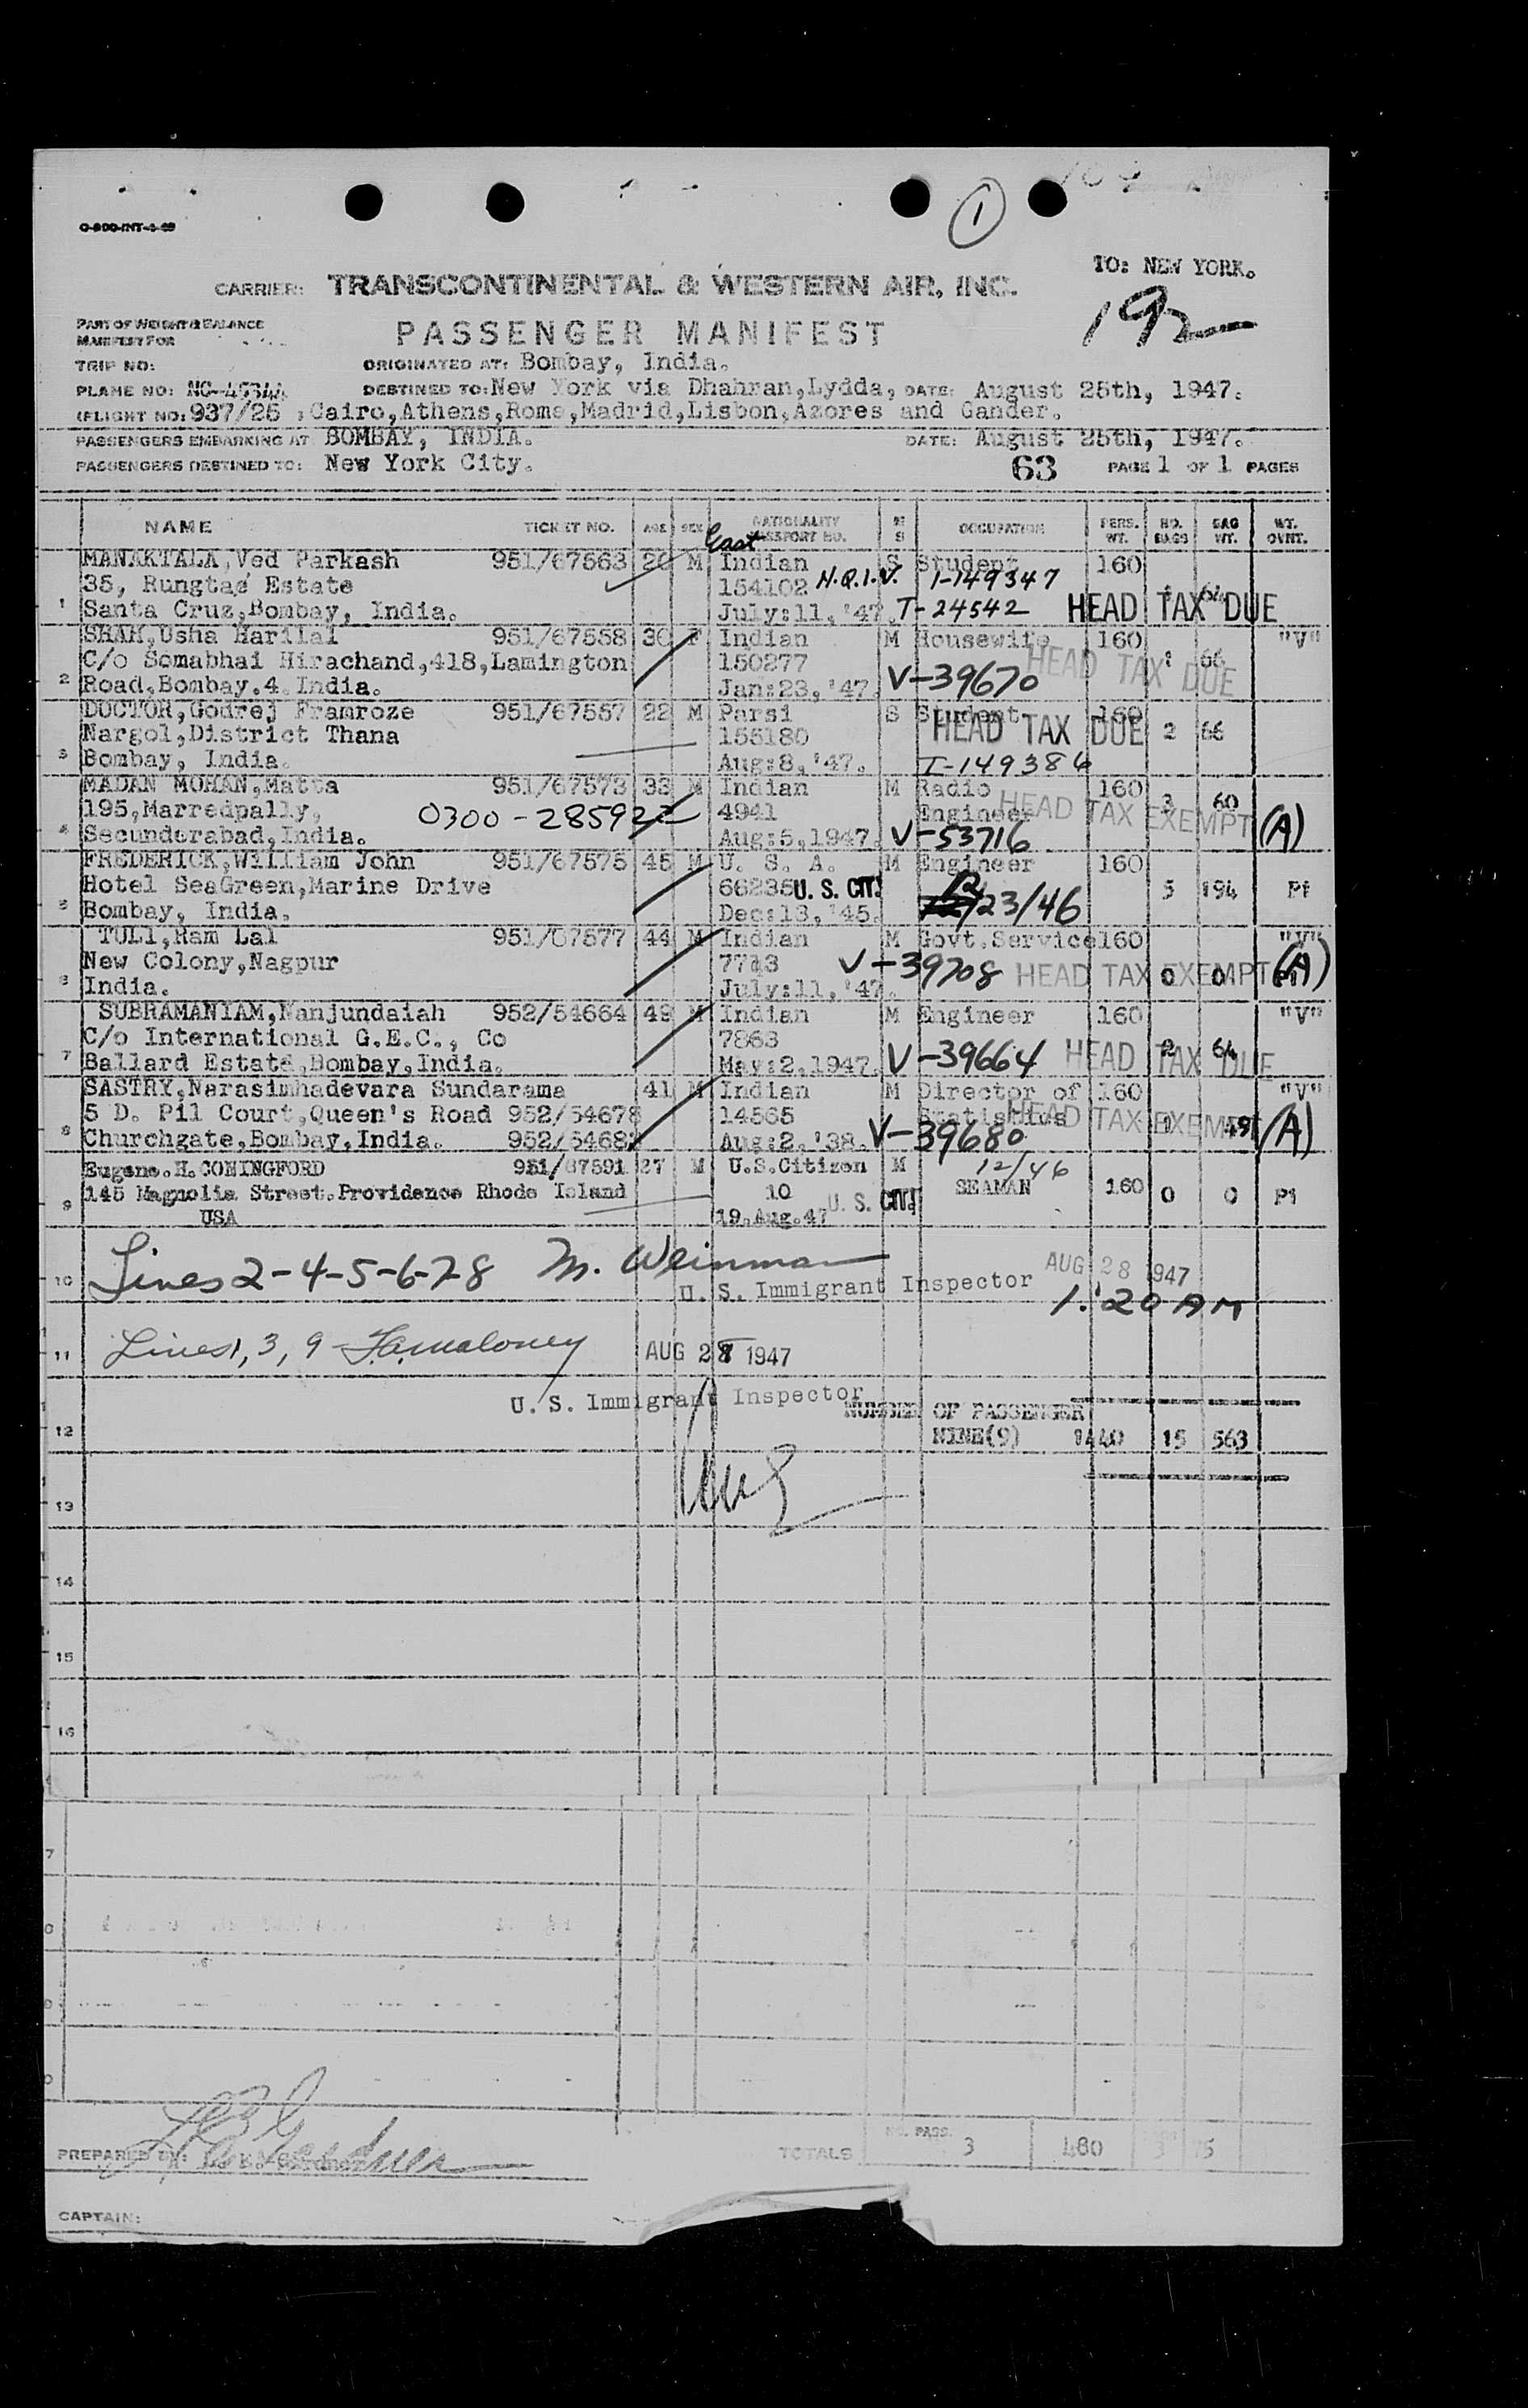 1
TO: NEW YORK.
192
CARRIER: TRANSCONTINENTAL & WESTERN AIR, INC.
PART OF WEIGHT & BALANCE
MANIFEST FOR
PASSENGER MANIFEST
TRIP NO:
ORIGINATED AT: Bombay, India.
PLANE NO:
DESTINED TO: New York via Dhahran,Lydda, DATE: August 25th, 1947.
(FLIGHT NO: 937/25 ; Cairo,Athens,Rome,Madrid,Lisbon,Azores and Gander.
PASSENGERS EMBARKING AT BOMBAY, INDIA. DATE: August 25th, 1947.
PASSENGERS DESTINED TO: New York City. 63 PAGE 1 OF 1 PAGES
NAME TICKET NO. AGE SEX NATIONALITY PASSPORT NO. M S OCCUPATION PERS. WT. NO. BAGS BAG WT. WT. OVNT.
East
MANAKTALA,Ved Parkash 951/67563 20 M Indian S Student 160
35, Rungtas Estate 154102 N.Q.I.V. 1-149347
1 Santa Cruz,Bombay, India. July:11,'47. T-24542 HEAD TAX DUE
SHAH,Usha Harilal 951/67558 30 F Indian M Housewife 160 "V"
C/o Somabhai Hirachand,418,Lamington 150277 HEAD TAX DUE 66
2 Road,Bombay.4.India. Jan:23,'47. V-39670
DOCTOR,Godrej Framroze 951/67557 22 M Parsi S Student 160
Nargol,District Thana 155180 HEAD TAX DUE 2 66
3 Bombay, India. Aug:8,'47. I-149386
MADAN MOHAN,Matta 951/67573 33 M Indian M Radio 160
195,Marredpally, 0300-285922 4941 Engineer HEAD TAX EXEMPT 3 60 (A)
4 Secunderabad,India. Aug:5,1947. V-53716
FREDERICK,William John 951/67575 45 M U. S. A. M Engineer 160
Hotel SeaGreen,Marine Drive 66235 U. S. CIT. 5 194 P1
5 Bombay, India. Dec:13,'45. 12/23/46
TULI,Ram Lal 951/67577 44 M Indian M Govt.Service 160 "V"
New Colony,Nagpur 7743 V-39708 HEAD TAX EXEMPT 0 0 (A)
6 India. July:11,'47.
SUBRAMANIAM,Nanjundaiah 952/54664 49 M Indian M Engineer 160 "V"
C/o International G.E.C., Co 7863
7 Ballard Estate,Bombay,India. May:2,1947. V-39664 HEAD TAX DUE 2 64
SASTRY,Narasimhadevara Sundarama 41 M Indian M Director of 160 "V"
5 D. Pil Court,Queen's Road 952/54678 14565 Statistics HEAD TAX EXEMPT 49 (A)
8 Churchgate,Bombay,India. 952/5468 Aug:2,'38. V-39680
Eugene.H.CONINGFORD 951/67591 27 M U.S.Citizen M 12/46
145 Magnolia Street.Providence Rhode Island 10 U. S. CIT. SEAMAN 160 0 0 P1
9 USA 19.Aug.47
10 Lines 2-4-5-6-7-8 M. Weinman AUG 28 1947
U. S. Immigrant Inspector 1:20 AM
11 Lines 1, 3, 9 F.A. Maloney AUG 28 1947
U. S. Immigrant Inspector
NUMBER OF PASSENGER
12 NINE(9) 1440 15 563
13
14
15
16
7
PREPARED BY: TOTALS NO. PASS. 3 480 3 75
CAPTAIN: